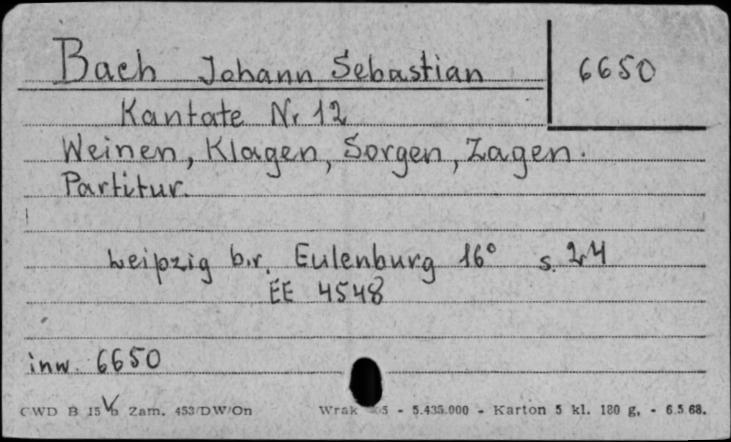 Bach Johann Sebastian 6650
Kantate Nr 12
Weinen, Klagen, Sorgen, Zagen.
Partitur.
Leipzig b.r. Eulenburg 16° s. 24
EE 4548
inw. 6650
CWD B 15 b Zam. 453/DW/On Wrak 5 - 5.435.000 - Karton 5 kl. 180 g. - 6.5.68.